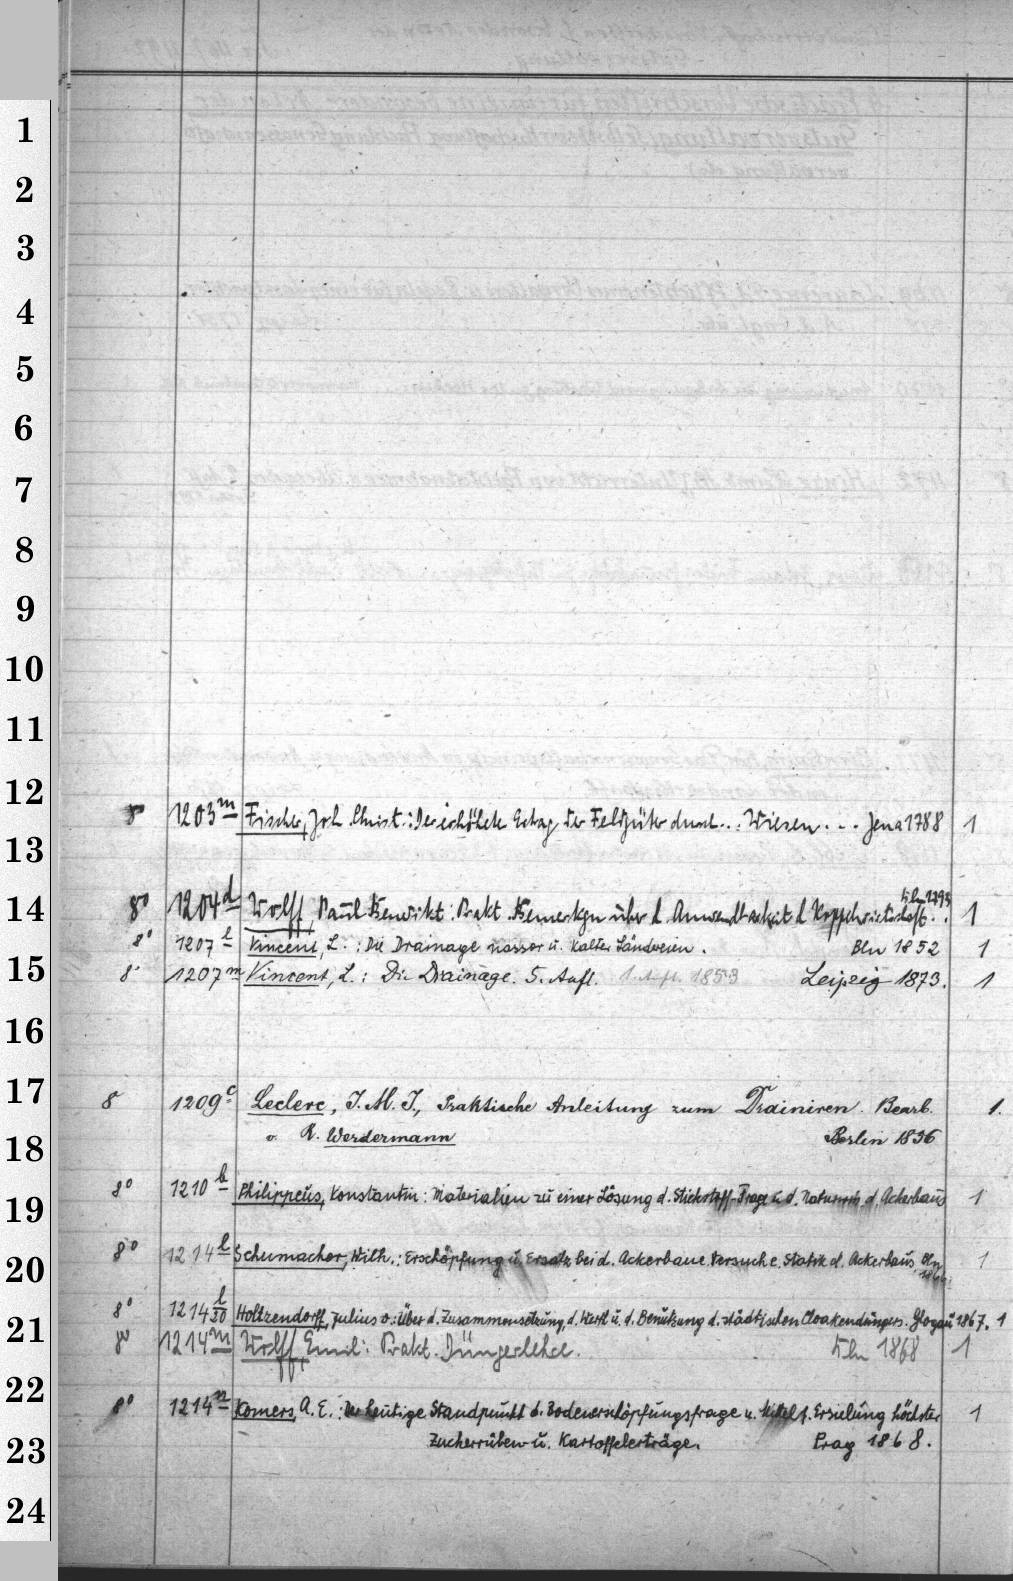 1
2
3
4
5
6
7
8
9
10
11
12
8° 1203 m Fischer, Joh. Christ.: Der erhöhete Ertrag der Feldgüter durch... Wiesen... Jena 1788 1
13
14
8° 1204 d Wolff, Paul Benedikt: Prakt. Bemerkgn über d. Anwendbarkeit d. 1793 1
8° 1207 l Vincent, L.: Die Drainage nasser u. kalter Ländereien. Bln 1852 1
15
8° 1207 m Vincent, L.: Die Drainage. 5. Aufl. 1853 Leipzig 1873. 1
16
17
8 1209 c Leclerc, J. M. J., Praktische Anleitung zum Drainiren. Bearb. 1.
18
v. R. Werdermann Berlin 1856
19
8° 1210 b Philippeus, Konstantin: Materialien zu einer Lösung d. Stickstoff-Frage u. d. d. Ackerbaus 1
20
8° 1214 l Schumacher, Wilh.: Erschöpfung u. Ersatz bei d. Ackerbaue. Versuch e. Statik d. Ackerbaus. Bln 1
8° 1214 l/30 Holtzendorff, Julius v.: Über d. Zusammensetzung, d. Wert u. d. Benützung d. städtischen Cloakendüngers. Glogau 1867. 1
21
8° 1214 m Wolff, Emil: Prakt. Düngerlehre. Bln 1868 1
22
8° 1214 n Komers, A. E.: Der heutige Standpunkt d. Bodenerschöpfungsfrage u. Mittel z. Erzielung höchster 1
23
Zuckerrüben u. Kartoffelerträge. Prag 1868.
24